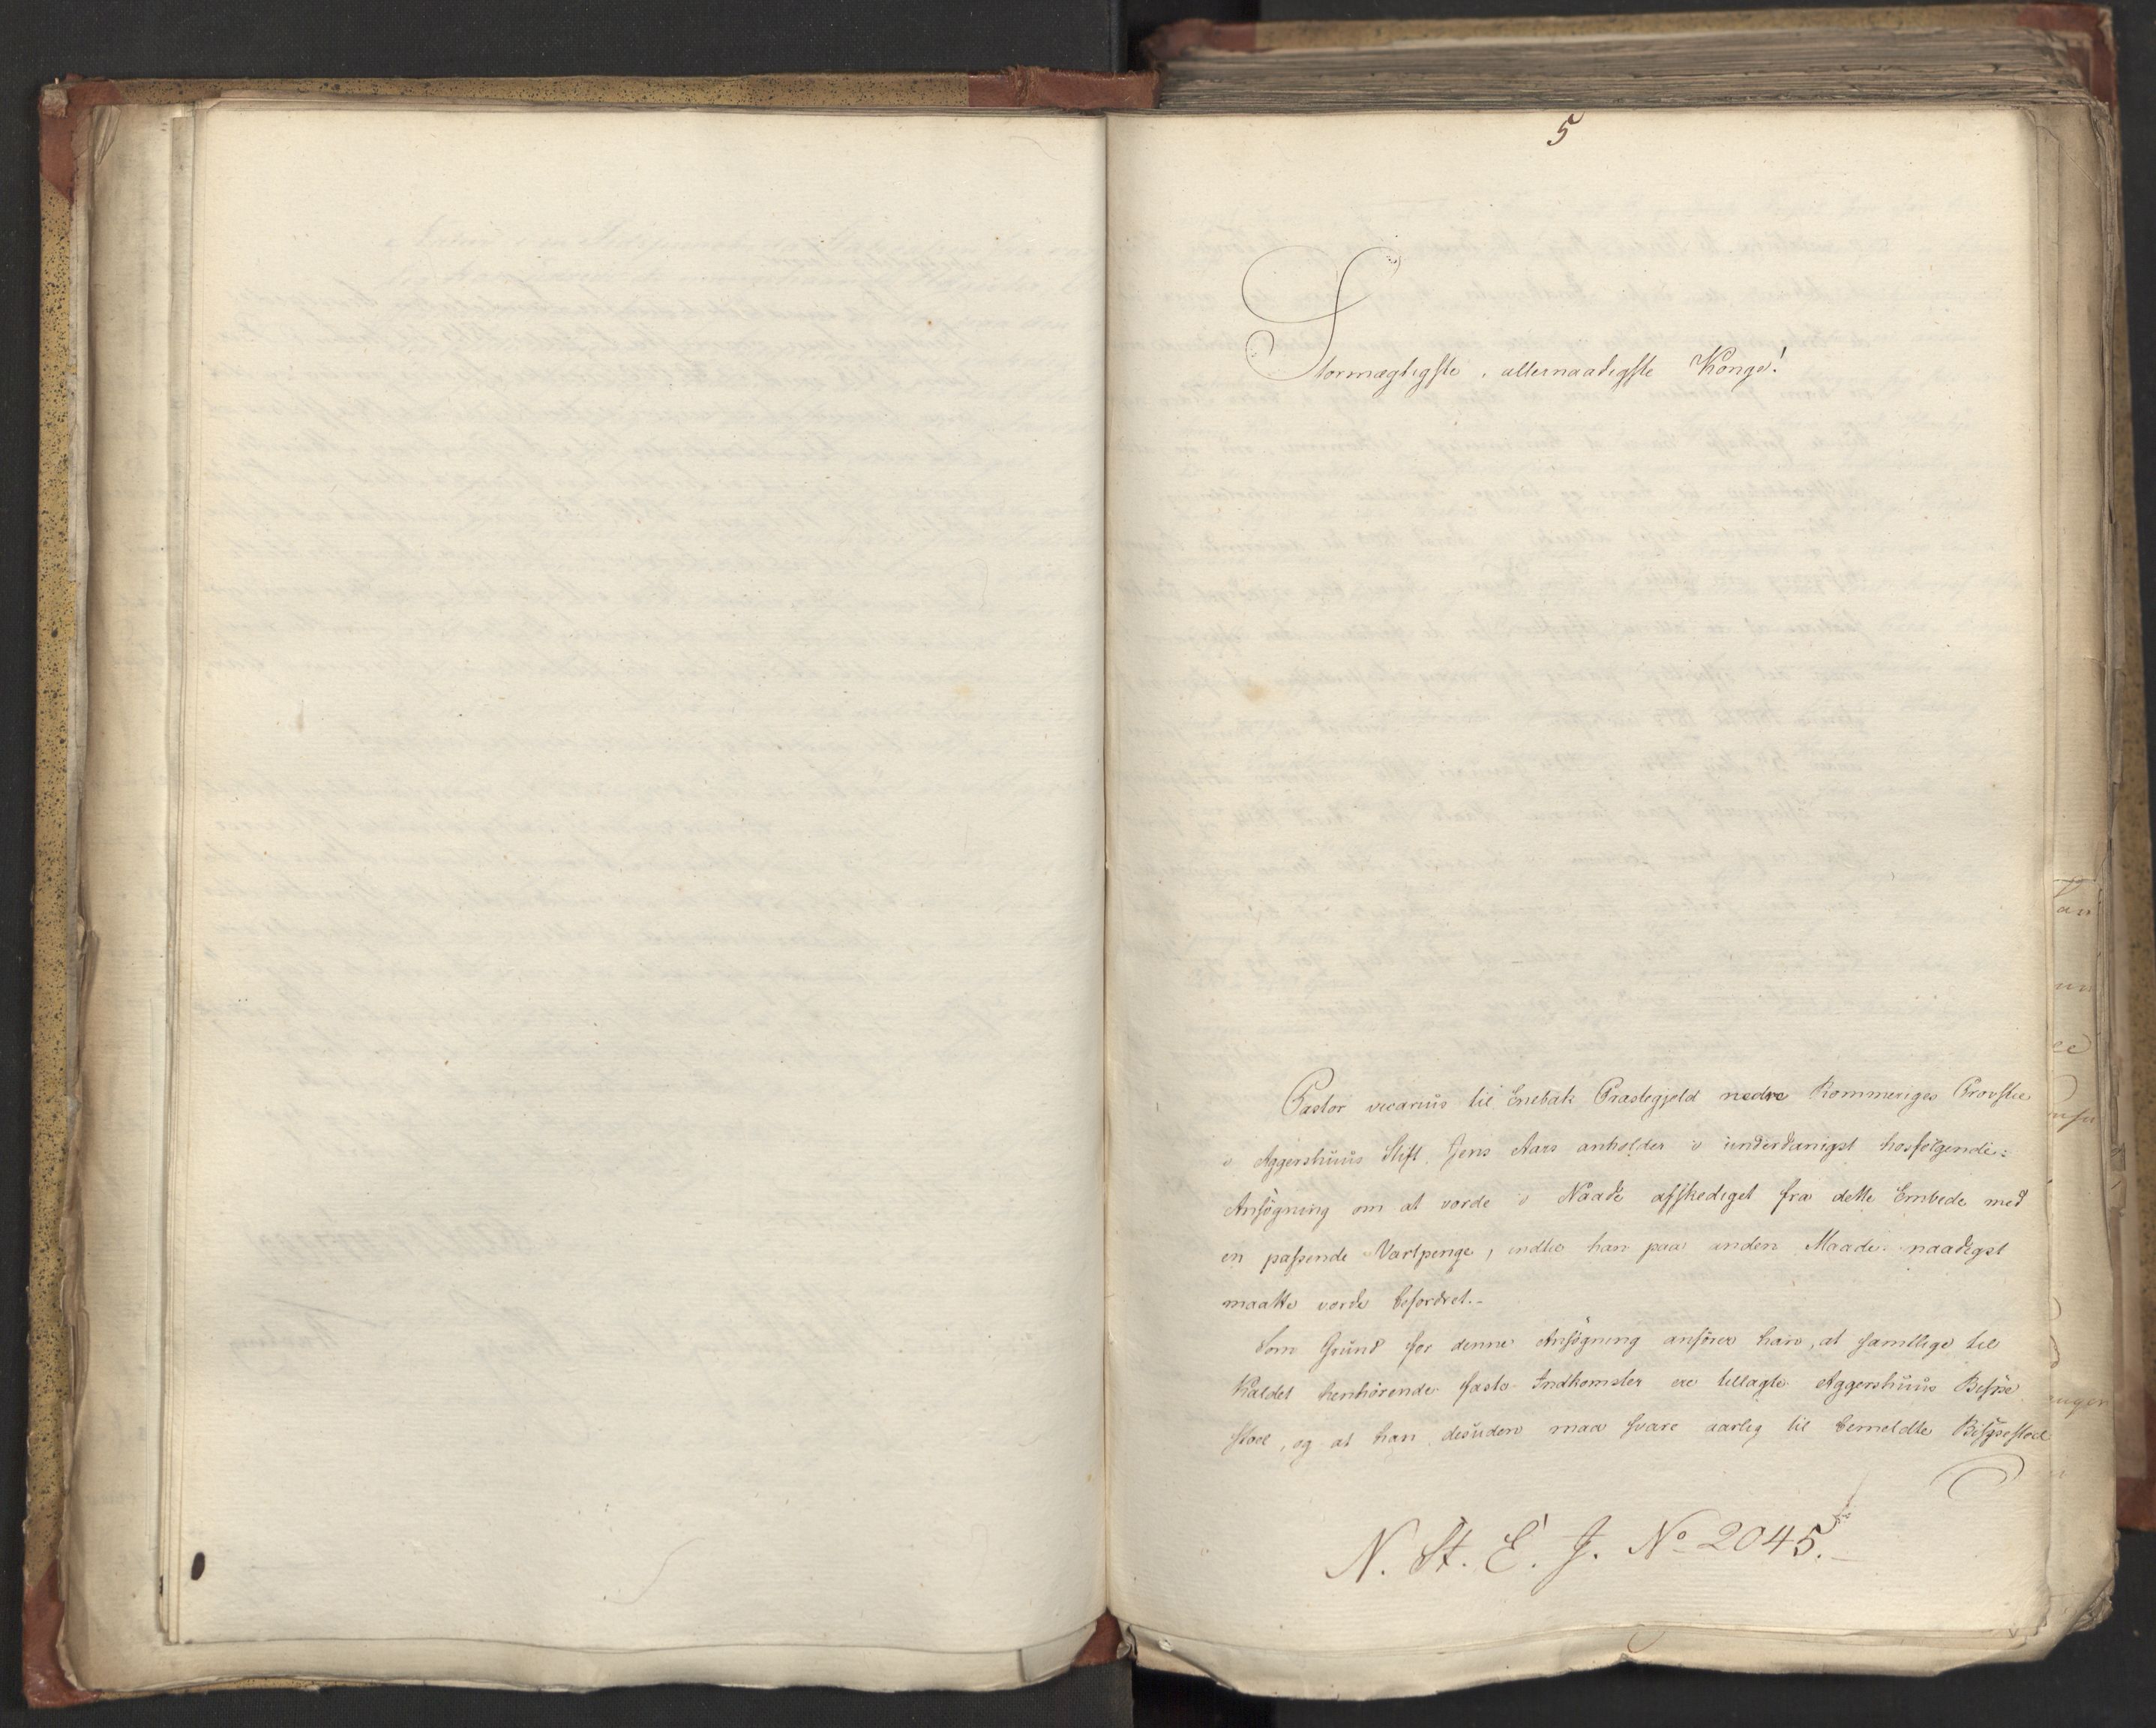 5
Stormægtigste, allernaadigste Konge!
Pastor vicarius til Enebak Præstegjeld nedre Rommeriges Provstie
i Aggershuus Stift Jens Aars anholder i underdanigst hosfølgende
Ansøgning om at vorde i Naade afskediget fra dette Embede med
en passende Vartpenge, indtil han paa anden Maade naadigst
maatte vorde befordret.-
Som Grund for denne Ansøgning anfører han, at samtlige til
Kaldet henhørende faste Indkomster ere tillagte Aggershuus Bispe
stoel, og at han desuden maa svare aarlig til bemeldte Bispestoel
N. St. E. J. No 2045.